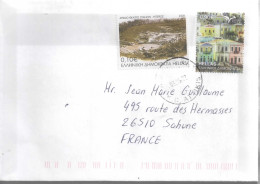 0,10€
ΕΛΛΗΝΙΚΗ ΔΗΜΟΚΡΑΤΙΑ HELLAS
Mr Jean Marie Guillaume
495 route des Hermasses
26510 Sahune
FRANCE